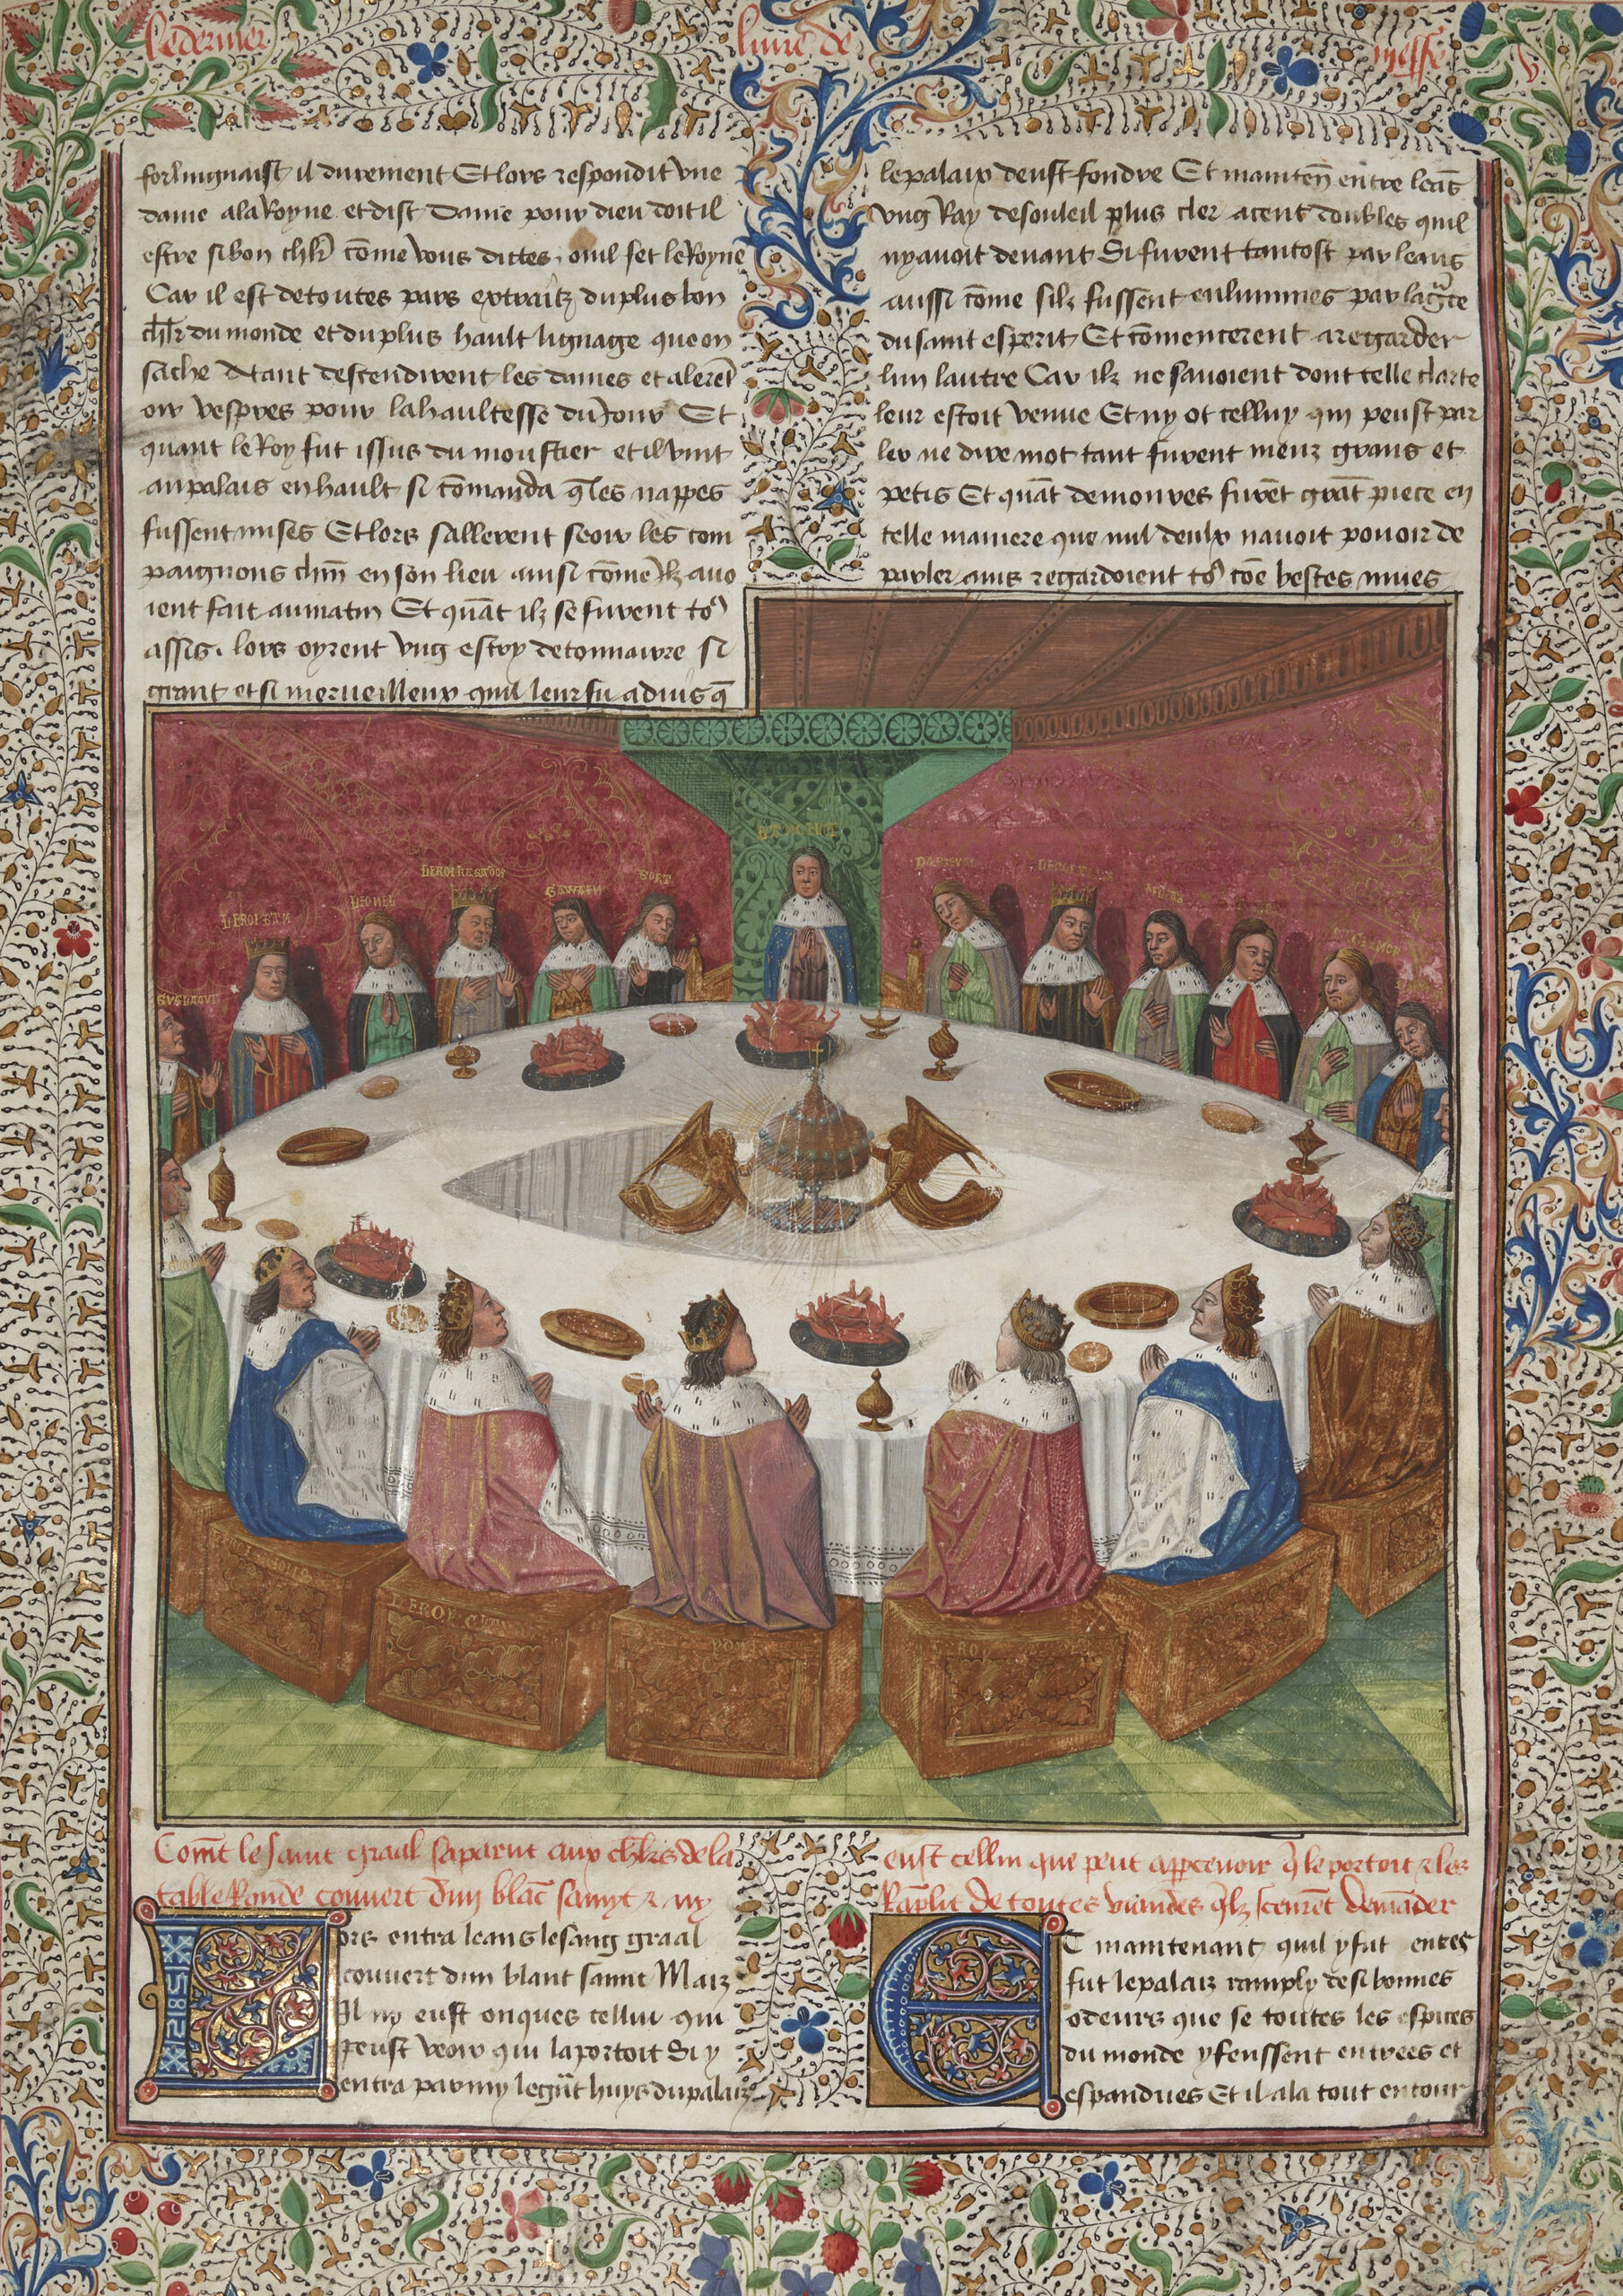 le dernier livre de messe
forlingnaist il durement Et lors respondit vne
dame ala Royne et dist Dame pour dieu doit il
estre si bon chlr cōme vous dittes. ouil fet le Royne
Car il est de toutes pars extraitz du plus bon
chlr du monde et du plus hault lignage que on
sache Atant descendirent les dames et alerēt
oir vespres pour la haultesse du Jour Et
quant le Roy fut issus du moustier et il vint
au palais en hault si cōmanda q̄ les nappes
fussent mises Et lors sallerent seoir les com
paignons chūn en son lieu ainsi cōme ilz auo
ient fait au matin Et quāt ilz se furent toꝰ
assis. lors oyrent vng estroy de tonnairre si
grant et si merueilleux quil leur fu aduis q̄
le palaix deust fondre Et maintēn entre leās
vng Ray de souleil plus cler a cent doubles quil
ny auoit deuant Si furent tantost par leans
aussi cōme silz fussent enlumines par la grace
du saint esperit Et cōmencerent a regarder
lun lautre Car ilz ne sauoient dont telle clarte
leur estoit venue Et ny ot celluy qui peust par
ler ne dire mot tant furent meuz grans et
petis Et quāt demoures furēt grāt piece en
telle maniere que nul deulx nauoit pouoir de
parler ains regardoient toꝰ cōe bestes mues
LIONEL
GAWAIN
BORT
LE ROY
Com̄t le saint graal saparut aux chlrs de la
table Ronde couuert dun blāc samyt z ny
eust cellui que peut apperceuoir q̄ le portoit z les
Raplit de toutes viandes q̄lz sceurēt demāder
Lors entra leans le saing graal
couuert dun blanc samit Maiz
Il ny eust onques cellui qui
peust veoir qui la portoit Si y
entra parmy le grāt huys du palaiz
Et maintenant quil y fut entres
fut le palaiz ramply de si bonnes
odeurs que se toutes les espices
du monde y feussent entrees et
espandues Et il ala tout entour